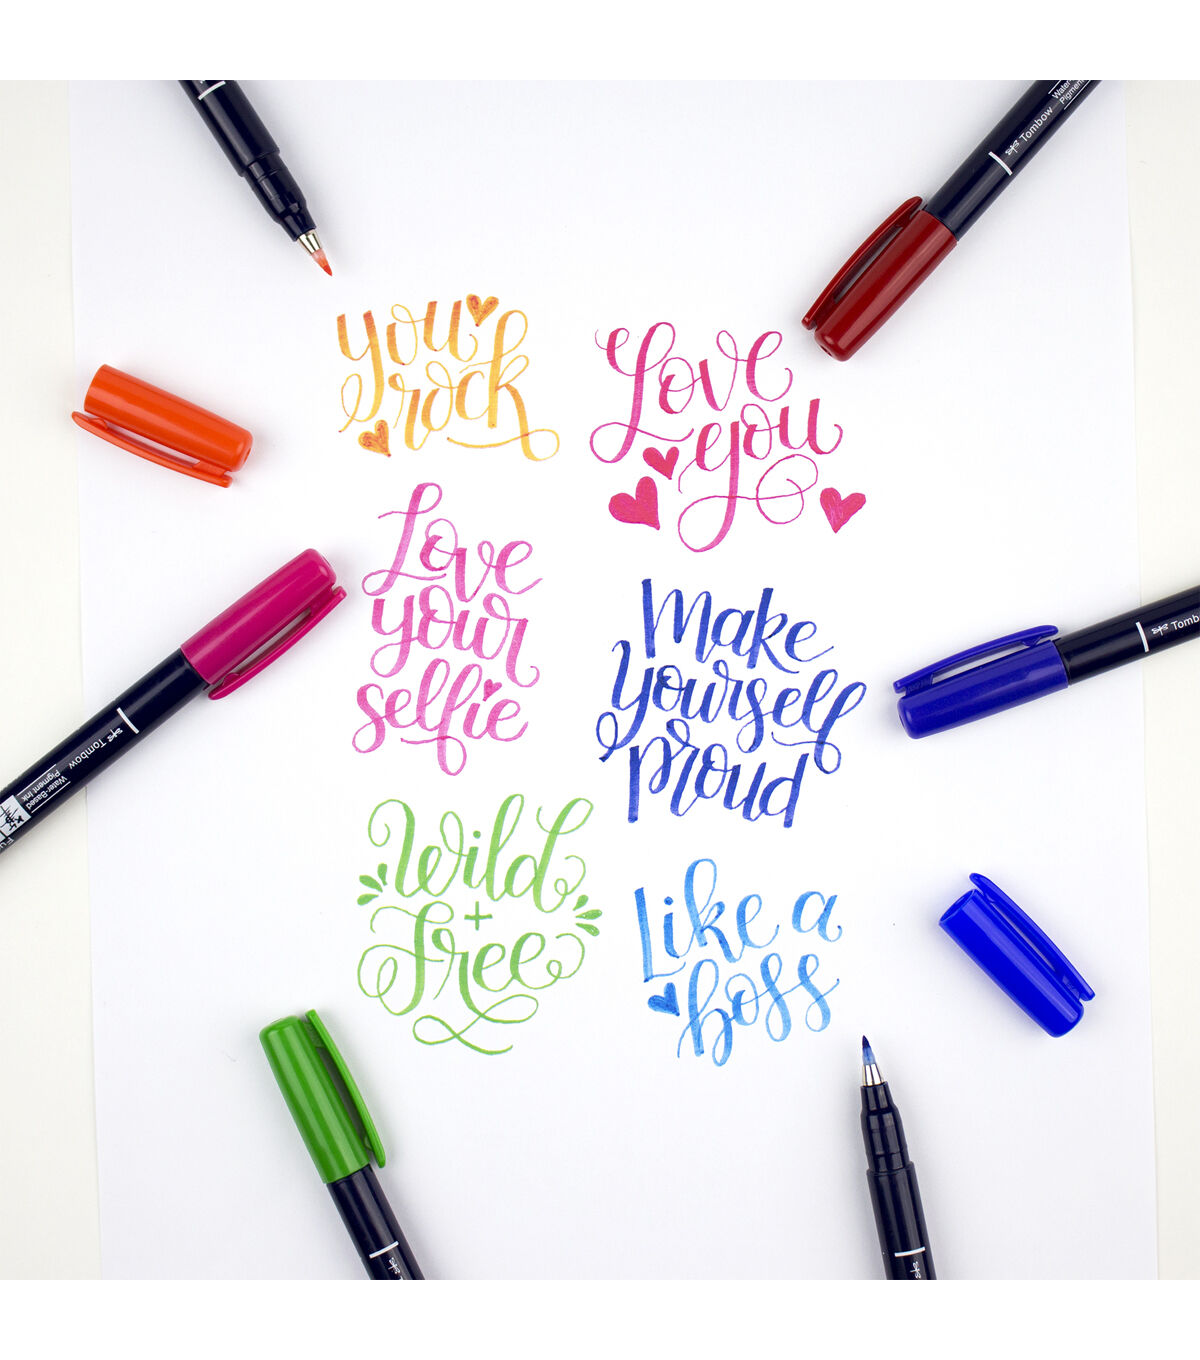 Tombow
Water
Pigmen
you
rock
Love
you
Love
your
selfie
Make
yourself
proud
Tombo
Tombow
Water-Based
Pigment Ink
Fu
Wild
+
Free
Like a
boss